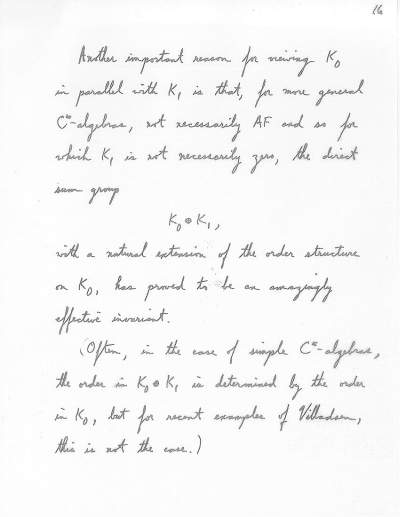 16
Another important reason for viewing K₀
in parallel with K₁ is that, for more general
C*-algebras, not necessarily AF and so for
which K₁ is not necessarily zero, the direct
sum group
K₀ ⊕ K₁,
with a natural extension of the order structure
on K₀, has proved to be an amazingly
effective invariant.
(Often, in the case of simple C*-algebras,
the order in K₀ ⊕ K₁ is determined by the order
in K₀, but for recent examples of Villadsen,
this is not the case.)